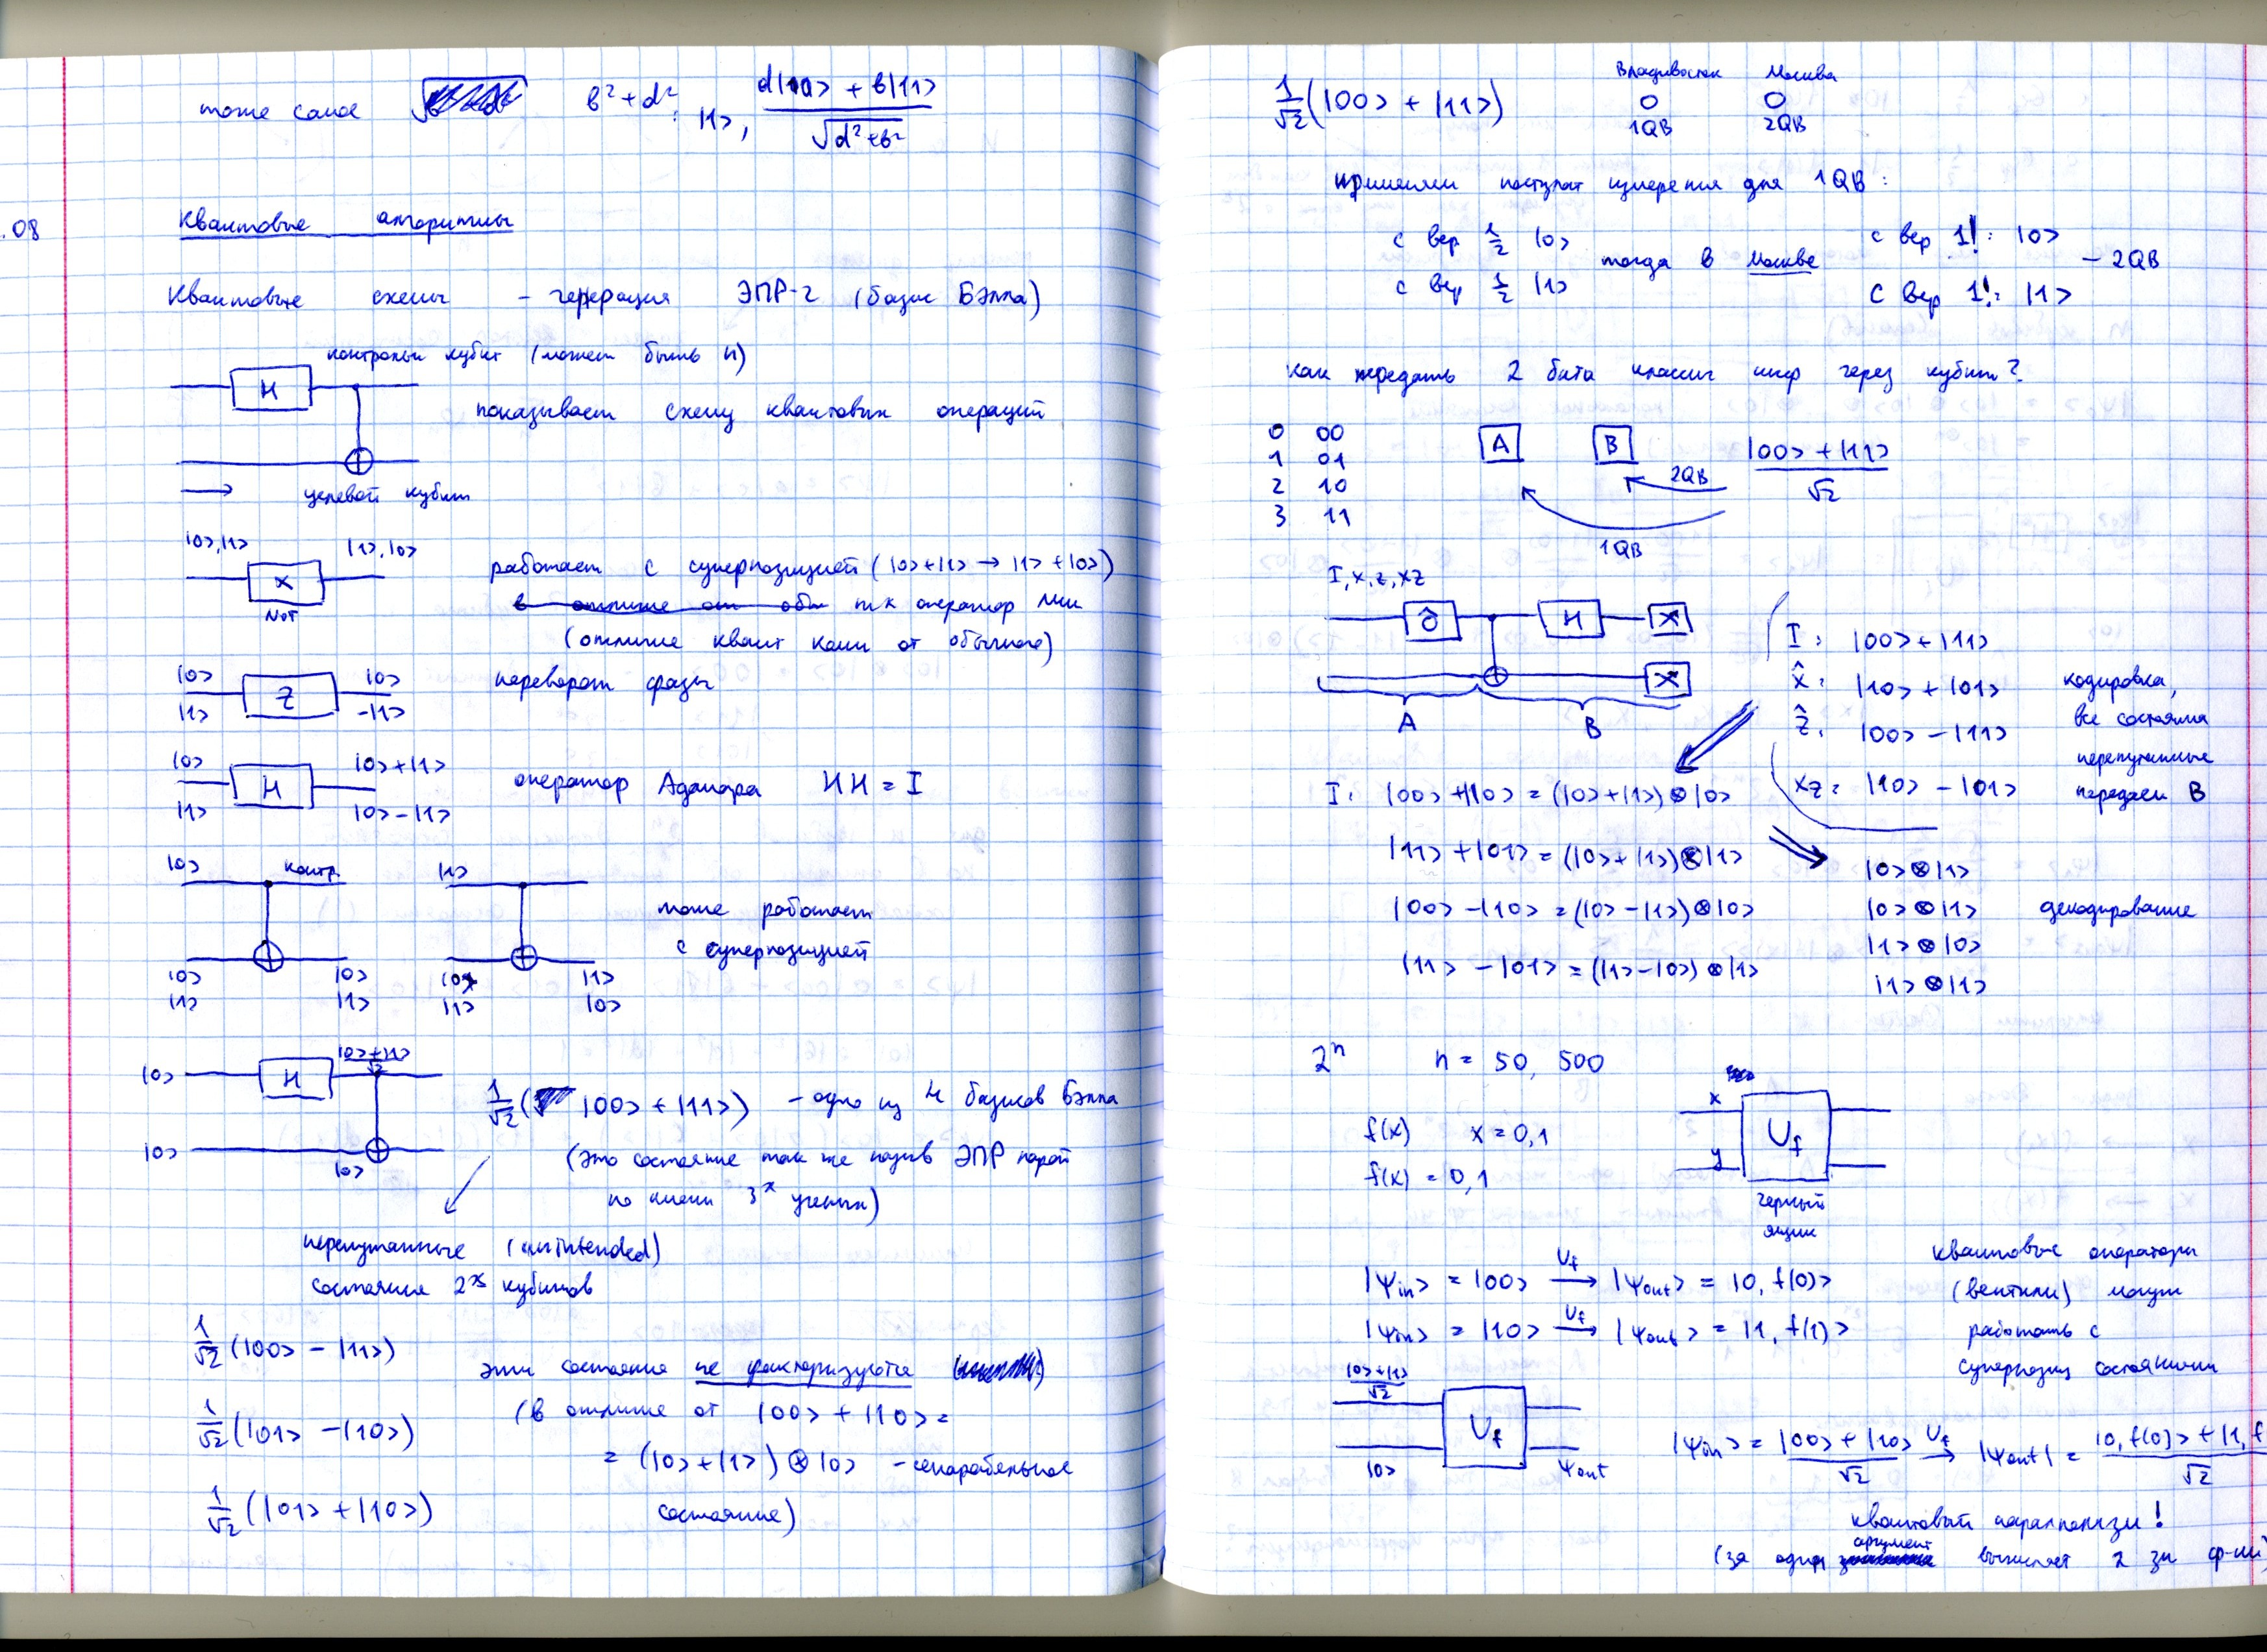 тоже самое b²+d²: |1>, (d|10> + b|11>)/√(d²+b²)
.08
Квантовые алгоритмы
Квантовые схемы – генерация ЭПР-2 (базис Бэлла)
контрольн кубит (может быть n)
H
показывает схему квантовых операций
целевой кубит
|0>,|1> X |1>,|0>
NOT
работает с суперпозицией (|0>+|1> → |1>+|0>)
т к оператор лин
(отличие квант комп от обычного)
|0> Z |0>
|1> -|1>
переворот фазы
|0> H |0>+|1>
|1> |0>-|1>
оператор Адамара HH = I
|0> контр. |1>
тоже работает
с суперпозицией
|0> |0> |0> |1>
|1> |1> |1> |0>
|0> H (|0>+|1>)/√2
1/√2( |00> + |11>) – одно из 4 базисов Бэлла
|0> |0>
(это состояние так же назыв ЭПР парой
по имени 3х ученых)
перепутанные (unintended)
состояния 2х кубитов
1/√2(|00> - |11>)
1/√2(|01> - |10>)
1/√2(|01> + |10>)
эти состояние не факторизуются
(в отличие от |00> + |10> =
= (|0>+|1>) ⊗ |0> – сепарабельное
состояние)
1/√2(|00> + |11>)
Владивосток Москва
1QB 2QB
применим постулат измерения для 1QB:
с вер 1/2 |0> тогда в Москве с вер 1!: |0> – 2QB
с вер 1/2 |1> с вер 1!: |1>
как передать 2 бита классич инф через кубит?
0 00
1 01
2 10
3 11
A B 2QB (|00> + |11>)/√2
1QB
I, X, Z, XZ
Ô H X
X
A B
I: |00>+|11>
X̂: |10> + |01>
Ẑ: |00> - |11>
XZ: |10> - |01>
кодировка,
все состояния
перепутанные
передаем B
I: |00> + |10> = (|0>+|1>) ⊗ |0>
|11> + |01> = (|0>+|1>) ⊗ |1>
|00> - |10> = (|0>-|1>) ⊗ |0>
|11> - |01> = (|1>-|0>) ⊗ |1>
|0> ⊗ |1>
|0> ⊗ |1> декодирование
|1> ⊗ |0>
|1> ⊗ |1>
2ⁿ n = 50, 500
f(x) x = 0,1
f(x) = 0,1
x
y
U_f
черный
ящик
|ψin> = |00> U_f → |ψout> = |0, f(0)>
|ψin> = |10> U_f → |ψout> = |1, f(1)>
квантовые операторы
(вентили) могут
работать с
суперпозиц состояниями
(|0>+|1>)/√2
U_f
|0> ψout
|ψin> = (|00> + |10>)/√2 U_f → |ψout| = (|0, f(0)> + |1, f)/√2
квантовый параллелизм!
(за один аргумент вычисляет 2 зн ф-ии)